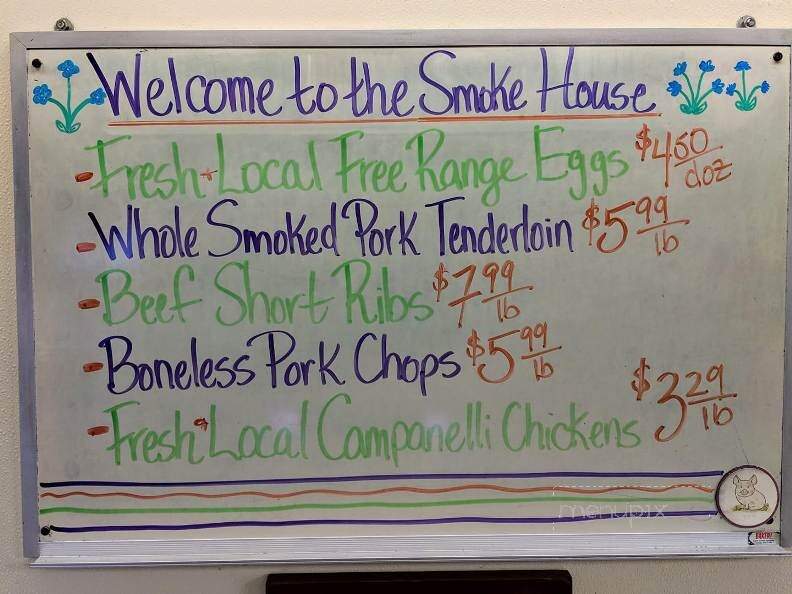 Welcome to the Smoke House
- Fresh * Local Free Range Eggs $4.50/doz
- Whole Smoked Pork Tenderloin $5.99/lb
- Beef Short Ribs $7.99/lb
- Boneless Pork Chops $5.99/lb
- Fresh * Local Campanelli Chickens $3.29/lb
menupix